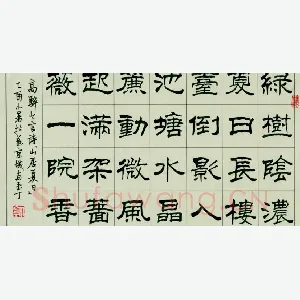 綠樹陰濃
夏日長樓
臺倒影入
池塘水晶
簾動微風
起滿架薔
薇一院香
高駢七言詩山居夏日
丁酉小暑於京城
Shufawang.CN